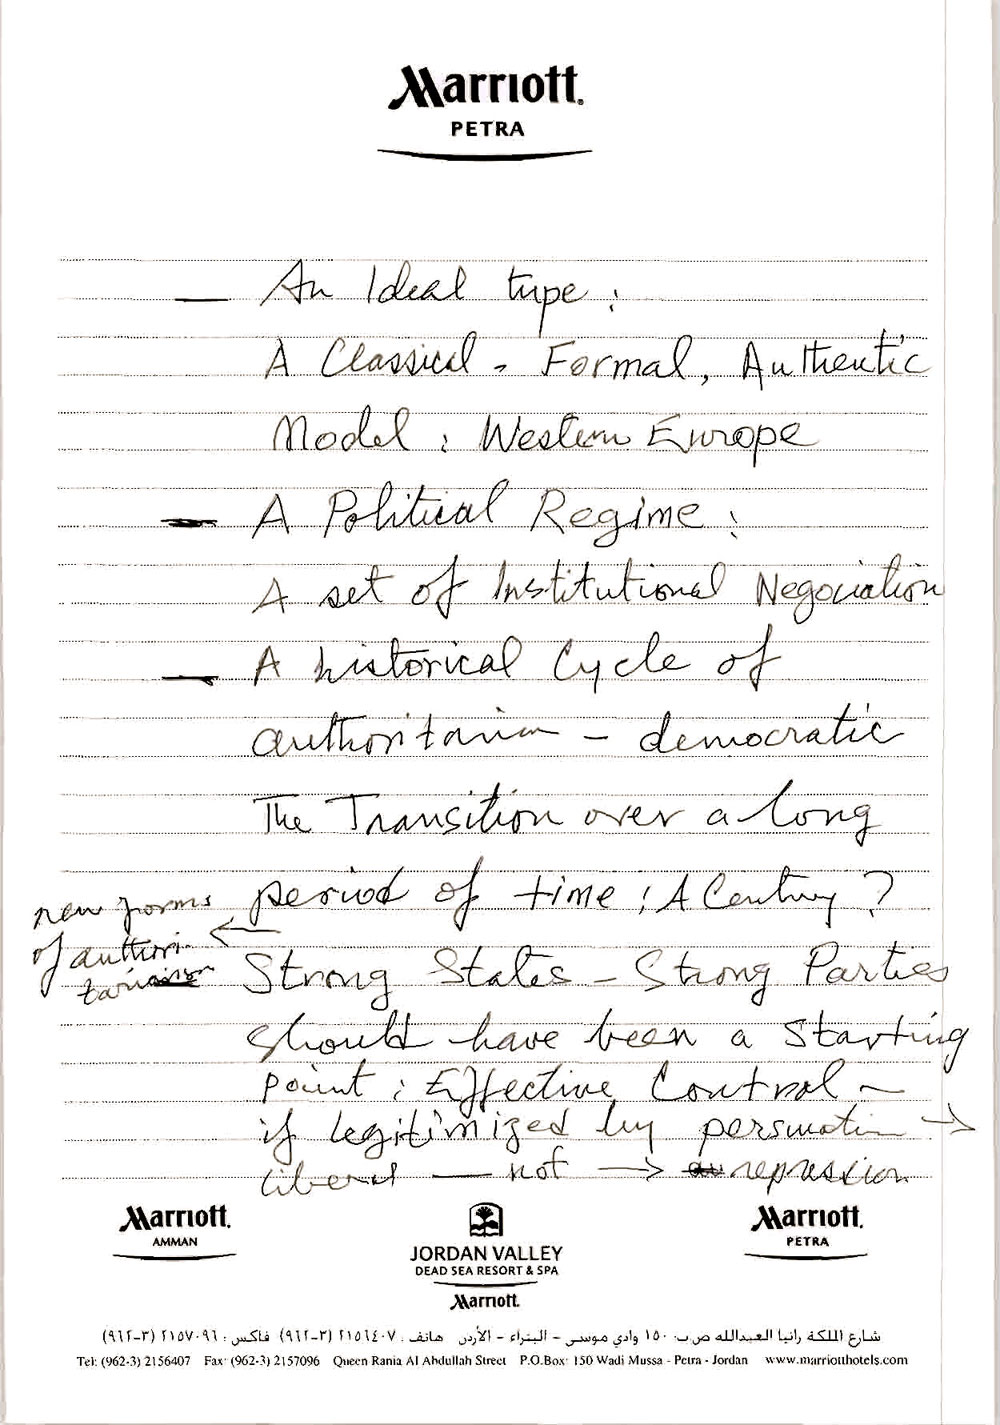 Marriott®
PETRA
— An Ideal type :
A Classical - Formal, Authentic
Model : Western Europe
— A Political Regime :
A set of Institutional Negociation
— A historical Cycle of
authoritarian – democratic
The Transition over a long
period of time : A Century ?
new forms
of authori-
tarianism
←
Strong States – Strong Parties
should have been a Starting
point : Effective Control –
if legitimized by persuation →
liberal — not → repression
Marriott®
AMMAN
JORDAN VALLEY
DEAD SEA RESORT & SPA
Marriott®
Marriott®
PETRA
شارع الملكة رانيا العبدالله ص.ب ١٥٠ وادي موسى - البتراء - الأردن هاتف : ٢١٥٦٤٠٧ (٣-٩٦٢) فاكس : ٢١٥٧٠٩٦ (٣-٩٦٢)
Tel: (962-3) 2156407 Fax: (962-3) 2157096 Queen Rania Al Abdullah Street P.O.Box: 150 Wadi Mussa - Petra - Jordan www.marriotthotels.com